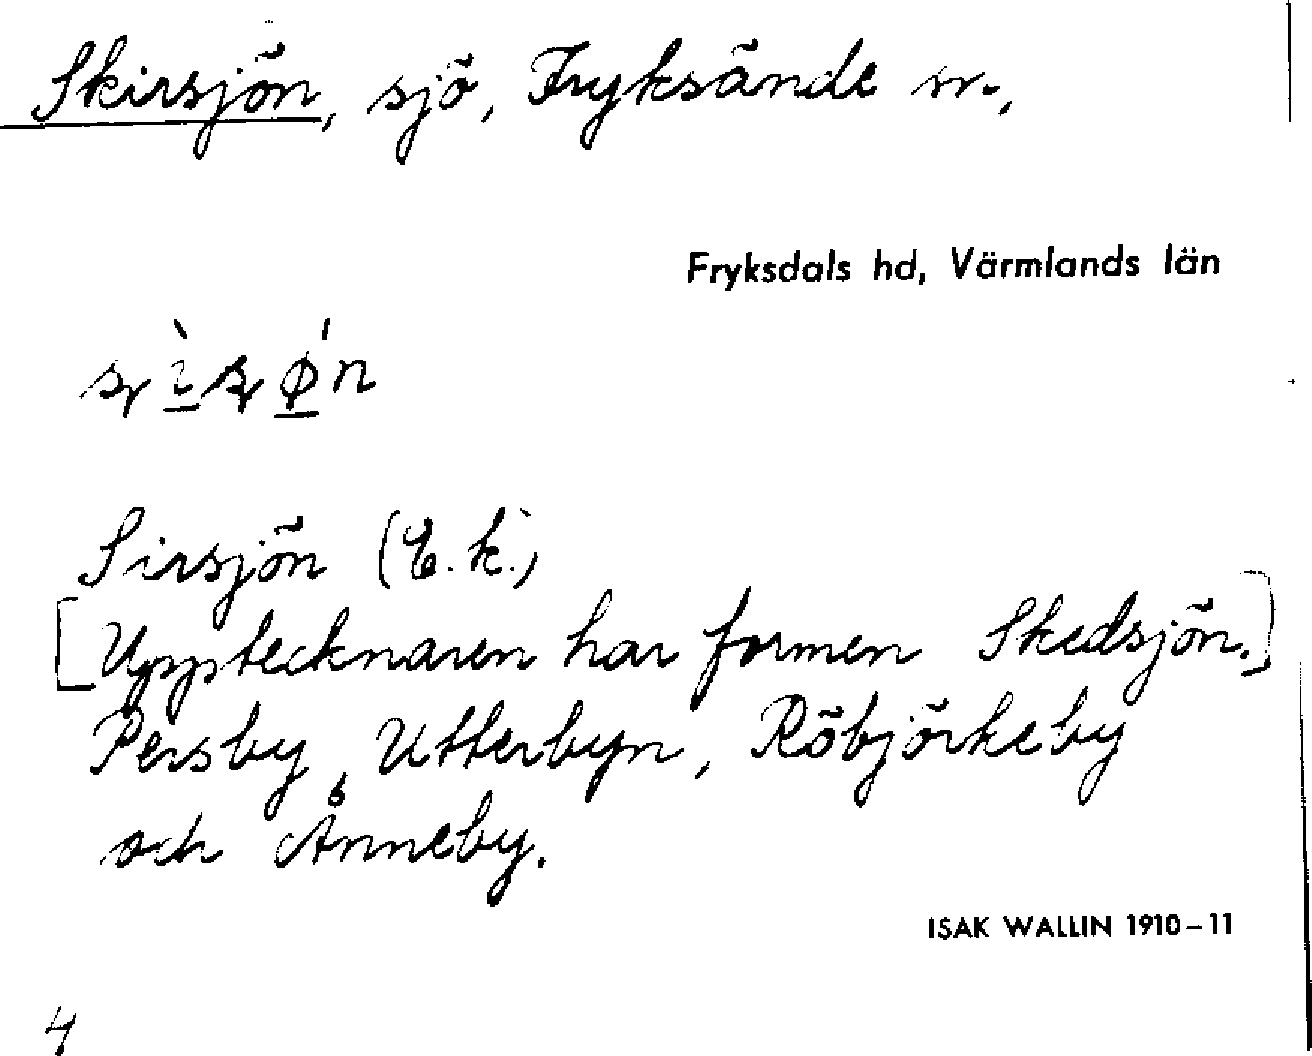 Skirsjön, sjö, Fryksände sn,
Fryksdals hd, Värmlands län
Sirsjön (E.k.)
[Upptecknaren har formen Skedsjön.]
Persby, Utterbyn, Röbjörkeby
och Ånneby.
ISAK WALLIN 1910–11
4